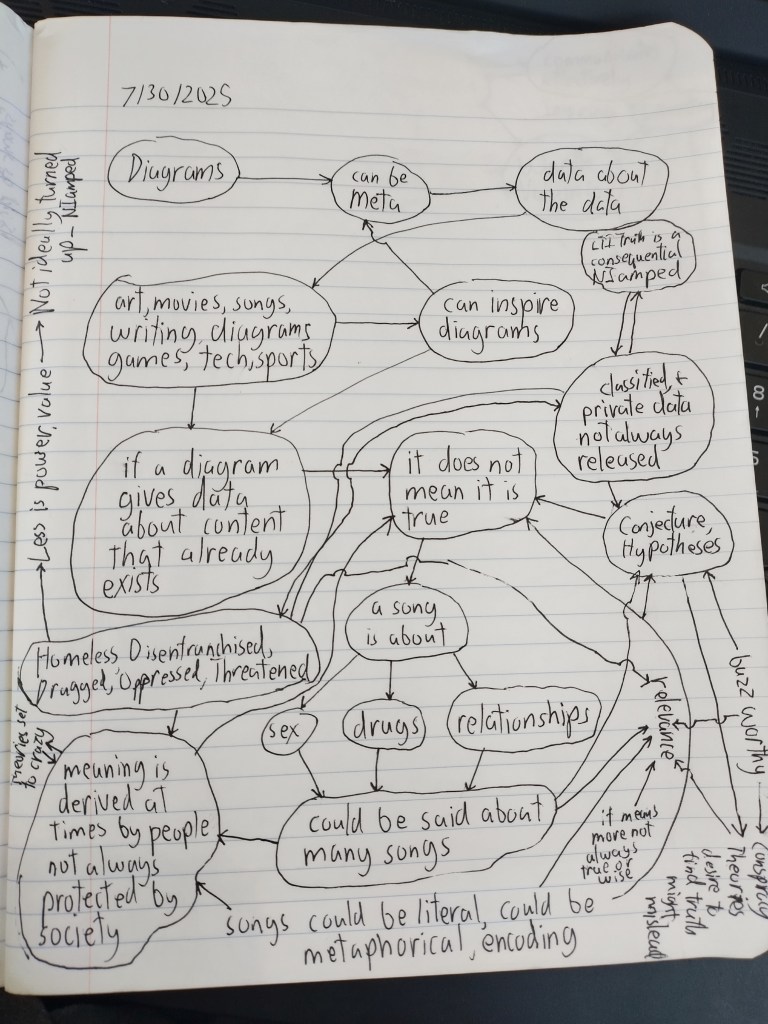 7/30/2025
Diagrams
can be
meta
data about
the data
LTI Truth is a
consequential
NIamped
art, movies, songs,
writing, diagrams
games, tech, sports
can inspire
diagrams
classified, +
private data
not always
released
if a diagram
gives data
about content
that already
exists
it does not
mean it is
true
Conjecture,
Hypotheses
a song
is about
Homeless Disenfranchised,
Drugged, Oppressed, Threatened
Less is power, value
Not ideally turned
up - NIamped
sex
drugs
relationships
relevance
buzz worthy
theories set
to crazy
meaning is
derived at
times by people
not always
protected by
society
could be said about
many songs
it means
more not
always
true or
wise
Conspiracy
Theories
desire to
find truth
might
mislead
songs could be literal, could be
metaphorical, encoding